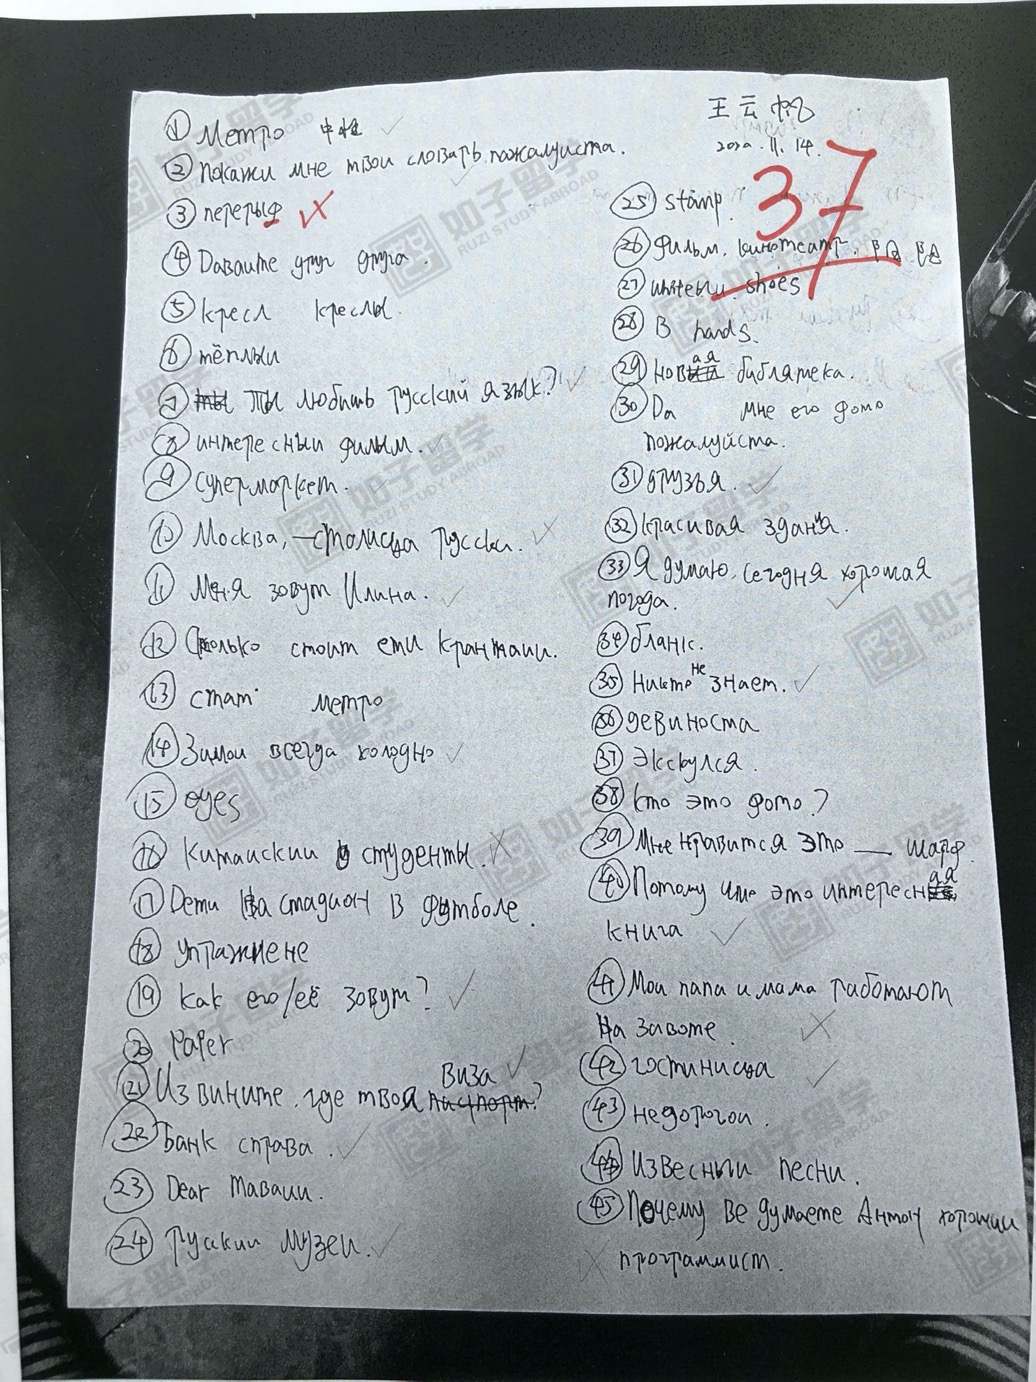 ① Метро 中性
② покажи мне твои словарь, пожалуиста.
③ перерыф
④ Даваите друг друга.
⑤ кресл креслы.
⑥ тёплыи
⑦ Ты любить русский язык?
⑧ интересныи филым.
⑨ супермаркет.
⑩ Москва, — столица русски.
⑪ Меня зовут Илина.
⑫ Сколько стоит ети крантаии.
⑬ стат метро
⑭ Зимои всегда холодно
⑮ eyes
⑯ Китаискии студенты.
⑰ Дети на стадион в футболе.
⑱ упражнене
⑲ как его/её зовут?
⑳ Paper
㉑ Извините, где твоя виза паспорт?
㉒ Банк справа.
㉓ Dear таваии.
㉔ русскии музеи.
王云
2020.11.14.
37
㉕ stamp.
㉖ фильм. кинотеатр.
㉗ shoes
㉘ В hands.
㉙ новая библятека.
㉚ Da мне его фото
пожалуйста.
㉛ друзья.
㉜ красивая здания.
㉝ Я думаю, сегодня хорошая
погода.
㉞ бланк.
㉟ Никто не знает.
㊱ девиноста
㊲ экскулся.
㊳ кто это фото?
㊴ Мне нравится это — шарф.
㊵ Потому что это интересная
книга
㊶ Мои папа и мама работают
на завоте.
㊷ гостиница
㊸ недорогои.
㊹ известныи песни.
㊺ Почему ве думаете Антон хорошии
программист.
如子留学
RUZI STUDY ABROAD